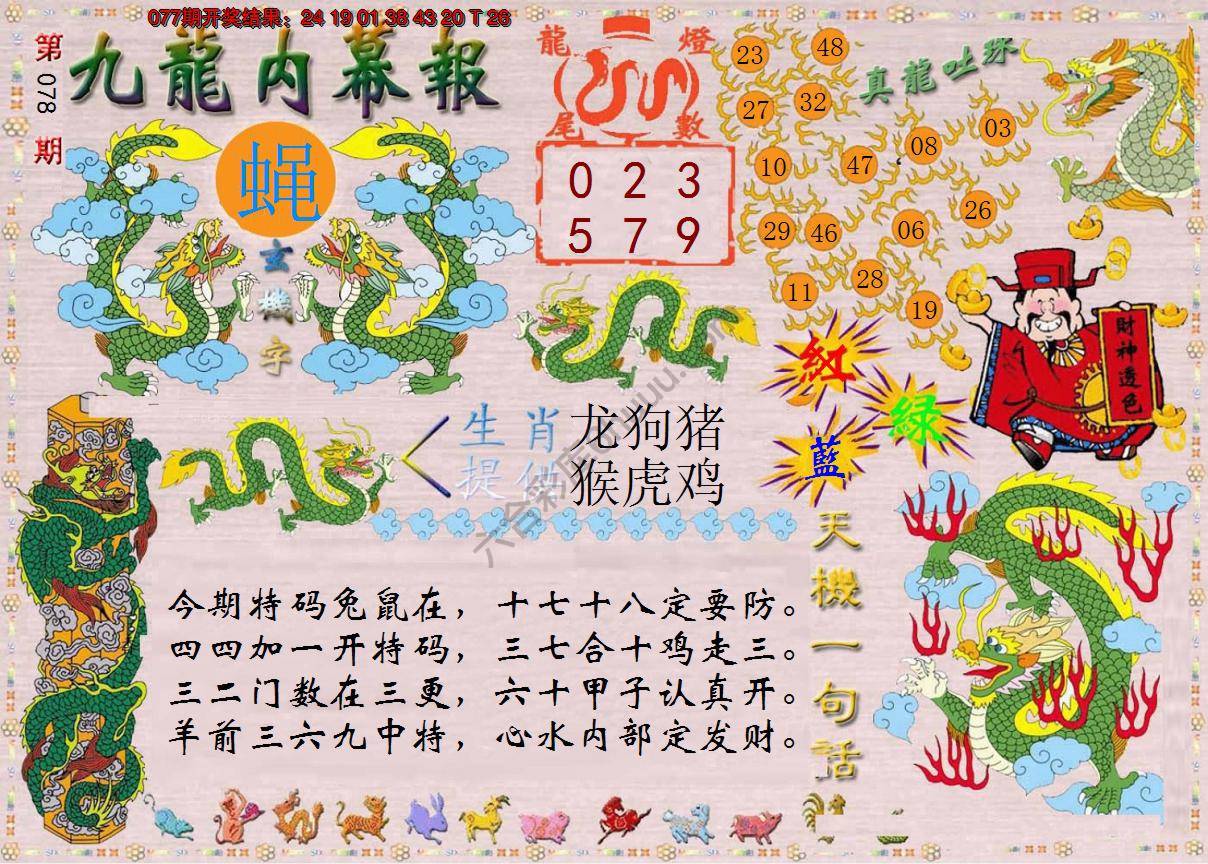 077期开奖结果：24 19 01 38 43 20 T 26
第078期
九龍内幕報
蝇
玄機字
龍燈
尾數
0 2 3
5 7 9
真龍吐珠
23 48
27 32
10 47 08 03
29 46 06 26
11 28 19
財神透色
紅
綠
藍
生肖 龙狗猪
提供 猴虎鸡
天機一句話
今期特码兔鼠在，十七十八定要防。
四四加一开特码，三七合十鸡走三。
三二门数在三更，六十甲子认真开。
羊前三六九中特，心水内部定发财。